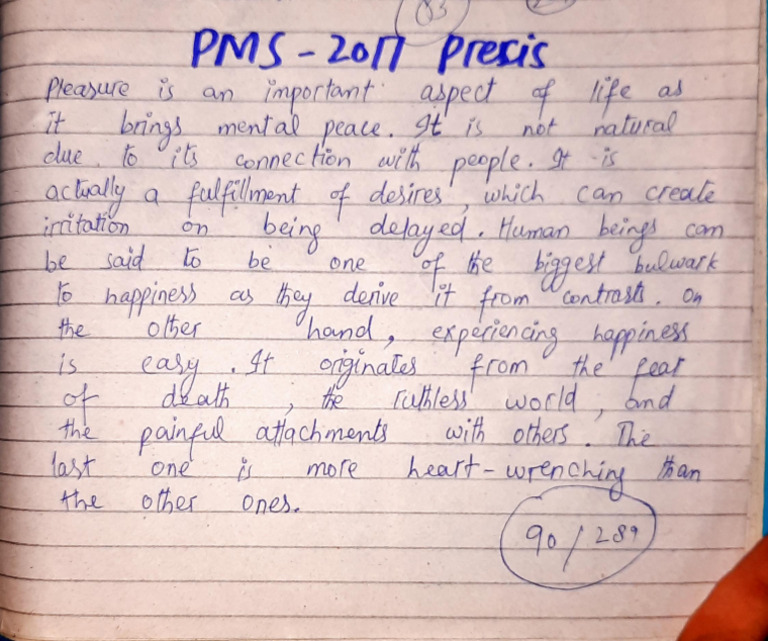 83
PMS - 2017 Presis
Pleasure is an important aspect of life as
it brings mental peace. It is not natural
due to its connection with people. It is
actually a fulfillment of desires, which can create
irritation on being delayed. Human beings can
be said to be one of the biggest bulwark
to happiness as they derive it from contrasts. On
the other hand, experiencing happiness
is easy. It originates from the fear
of death, the ruthless world, and
the painful attachments with others. The
last one is more heart-wrenching than
the other ones.
90/289